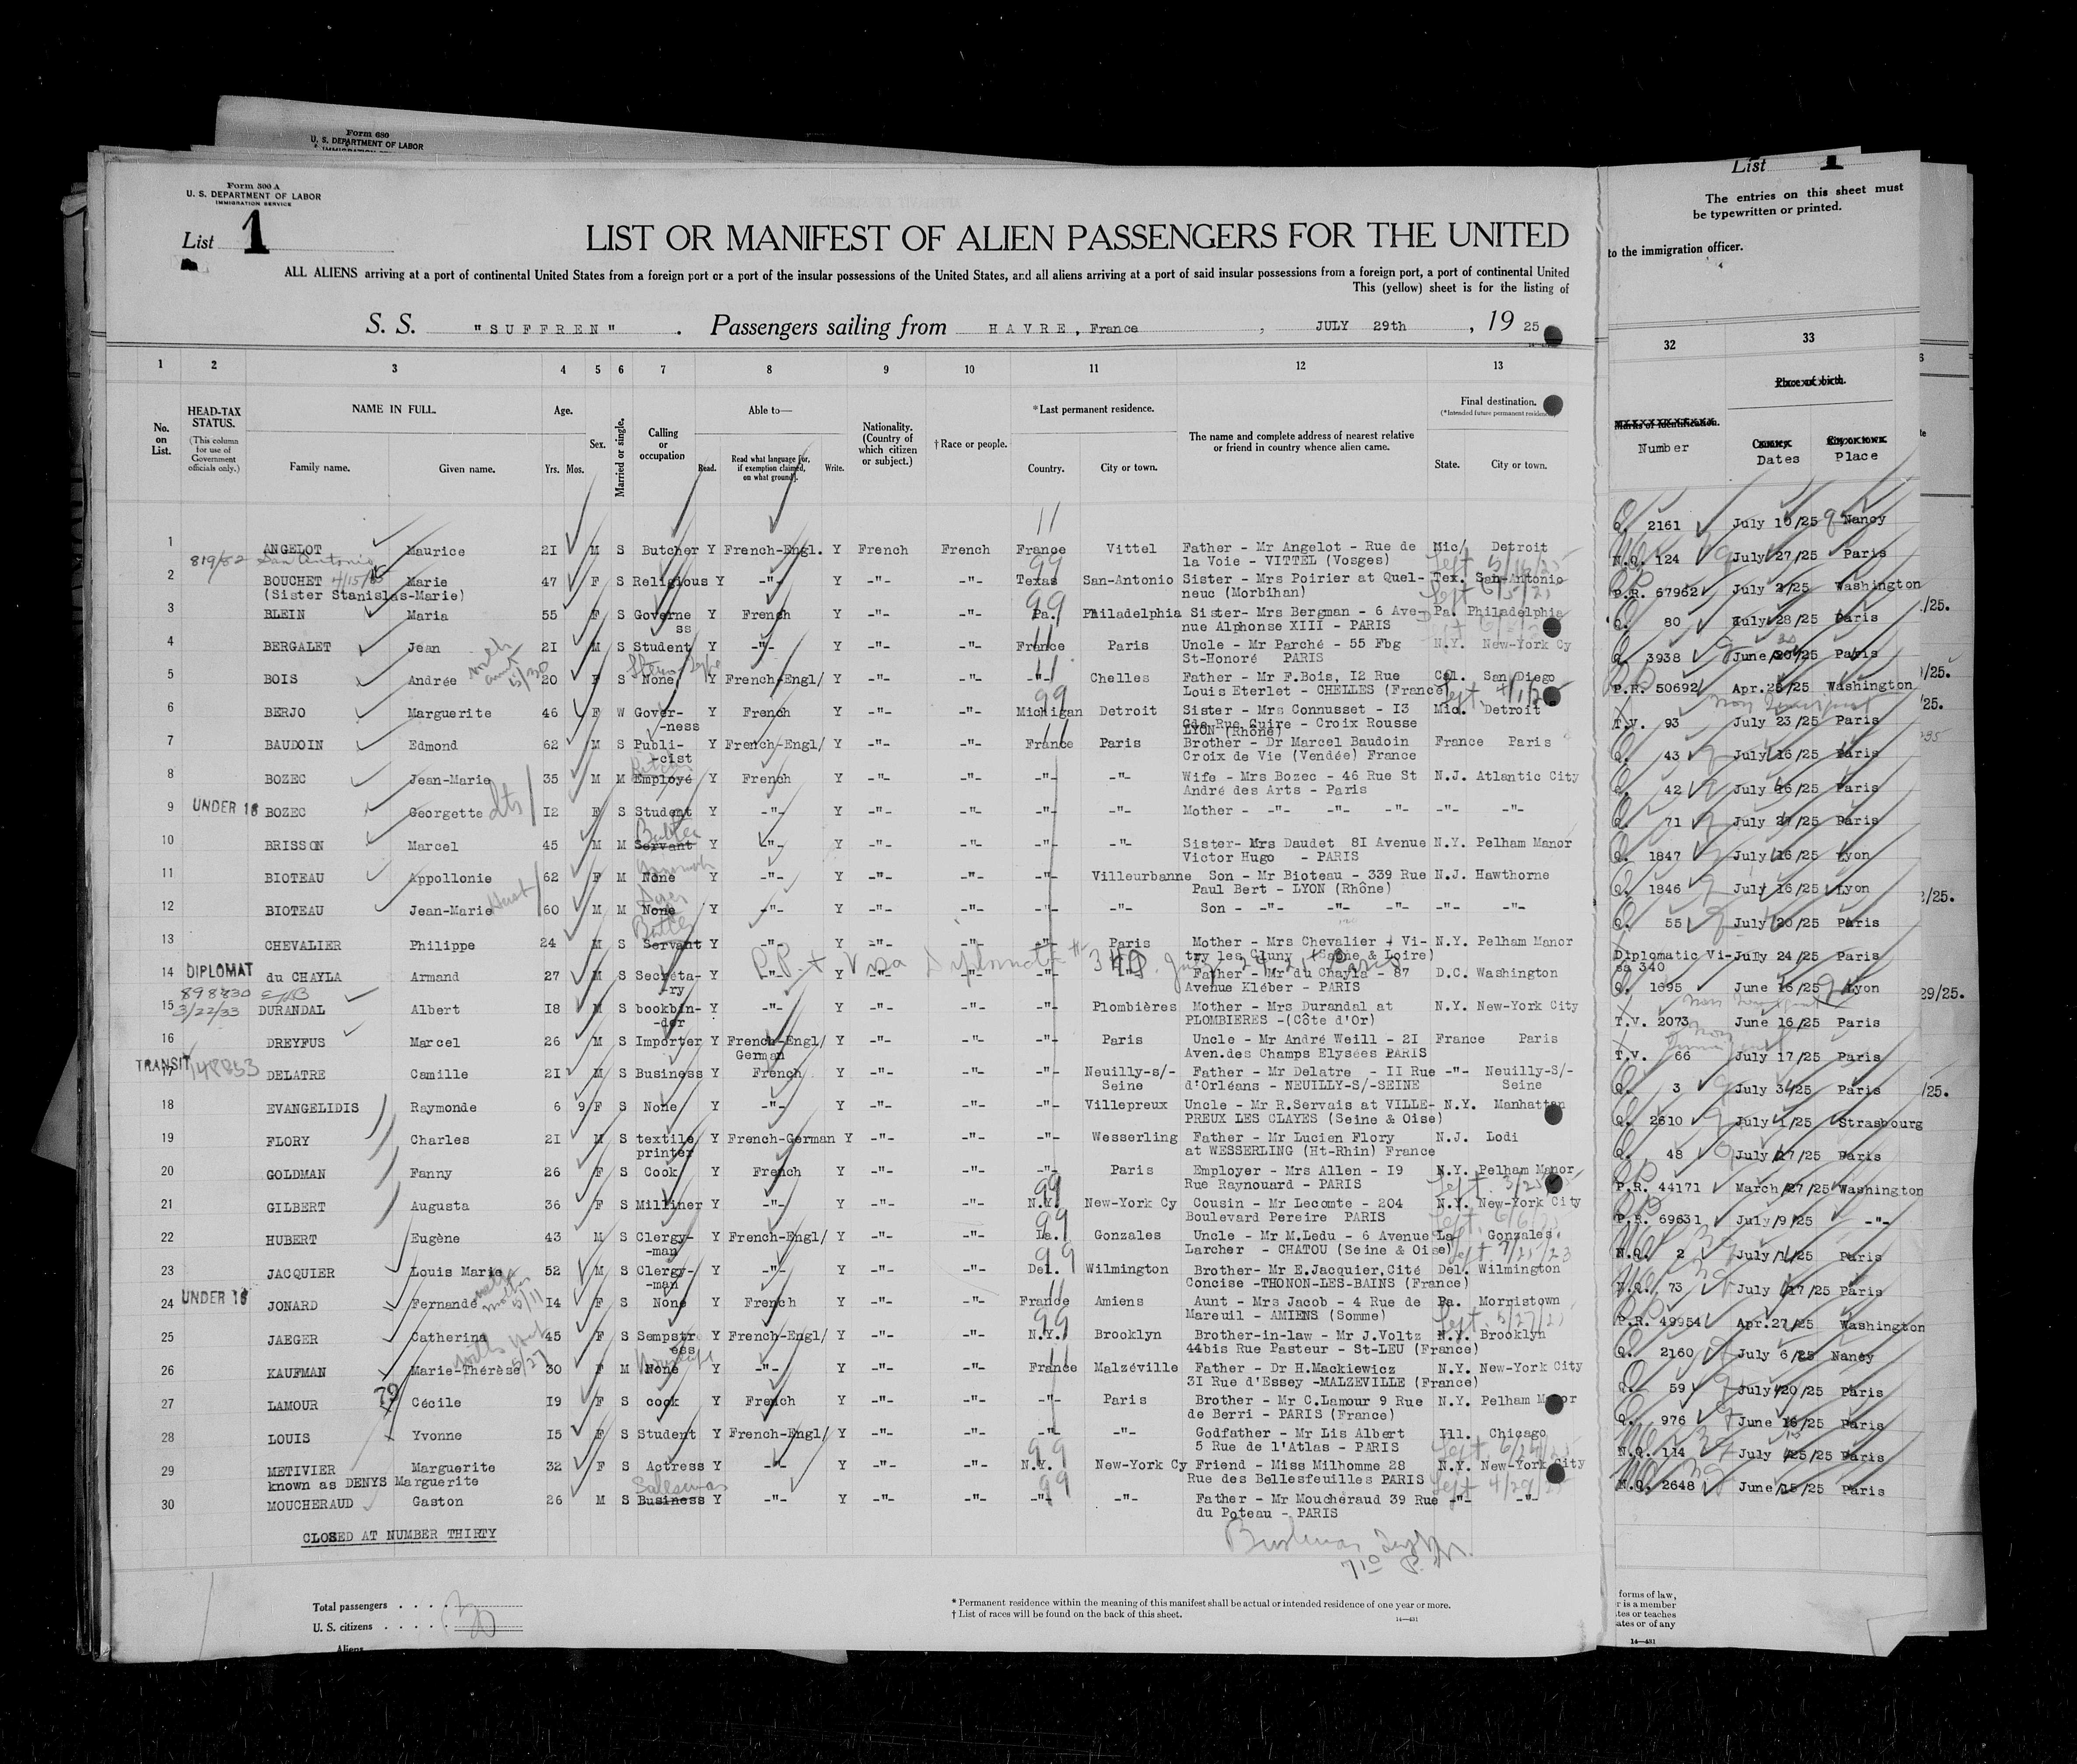 Form 680
U. S. DEPARTMENT OF LABOR
Form 500 A
U. S. DEPARTMENT OF LABOR
IMMIGRATION SERVICE
List 1
LIST OR MANIFEST OF ALIEN PASSENGERS FOR THE UNITED
ALL ALIENS arriving at a port of continental United States from a foreign port or a port of the insular possessions of the United States, and all aliens arriving at a port of said insular possessions from a foreign port, a port of continental United
This (yellow) sheet is for the listing of
S. S. "SUFFREN" . Passengers sailing from HAVRE, France , JULY 29th , 19 25
1 2 3 4 5 6 7 8 9 10 11 12 13
No. on List.
HEAD-TAX STATUS.
(This column for use of Government officials only.)
NAME IN FULL.
Family name. Given name.
Age.
Yrs. Mos.
Sex.
Married or single.
Calling or occupation
Able to—
Read. Read what language [or, if exemption claimed, on what ground]. Write.
Nationality. (Country of which citizen or subject.)
† Race or people.
*Last permanent residence.
Country. City or town.
The name and complete address of nearest relative or friend in country whence alien came.
Final destination.
(*Intended future permanent residence)
State. City or town.
1 ANGELOT Maurice 2I M S Butcher Y French-Engl. Y French French France Vittel Father - Mr Angelot - Rue de Mic/ Detroit
la Voie - VITTEL (Vosges)
819/82 San Antonio
2 BOUCHET 4/15/ Marie 47 F S Religious Y -"- Y -"- -"- Texas San-Antonio Sister - Mrs Poirier at Quel- Tex. San-Antonio
(Sister Stanislas-Marie) neuc (Morbihan)
3 BLEIN Maria 55 F S Governe Y French Y -"- -"- Pa. Philadelphia Sister- Mrs Bergman - 6 Ave- Pa. Philadelphia
ss nue Alphonse XIII - PARIS
4 BERGALET Jean 2I M S Student Y -"- Y -"- -"- France Paris Uncle - Mr Parché - 55 Fbg N.Y. New-York Cy
St-Honoré PARIS
5 BOIS Andrée 20 F S None Y French-Engl/ Y -"- -"- -"- Chelles Father - Mr F.Bois, I2 Rue Cal. San Diego
Louis Eterlet - CHELLES (France)
6 BERJO Marguerite 46 F W Gover- Y French Y -"- -"- Michigan Detroit Sister - Mrs Connusset - I3 Mic. Detroit
-ness Gde Rue Cuire - Croix Rousse
LYON (Rhône)
7 BAUDOIN Edmond 62 M S Publi- Y French-Engl/ Y -"- -"- France Paris Brother - Dr Marcel Baudoin France Paris
-cist Croix de Vie (Vendée) France
8 BOZEC Jean-Marie 35 M M Employé Y French Y -"- -"- -"- -"- Wife - Mrs Bozec - 46 Rue St N.J. Atlantic City
André des Arts - Paris
9 UNDER 16 BOZEC Georgette I2 F S Student Y -"- Y -"- -"- -"- -"- Mother - -"- -"- -"- -"- -"-
Butler
10 BRISSON Marcel 45 M M Servant Y -"- Y -"- -"- -"- -"- Sister- Mrs Daudet 8I Avenue N.Y. Pelham Manor
Victor Hugo - PARIS
11 BIOTEAU Appollonie 62 F M None Y -"- Y -"- -"- -"- Villeurbanne Son - Mr Bioteau - 339 Rue N.J. Hawthorne
Paul Bert - LYON (Rhône)
12 BIOTEAU Jean-Marie 60 M M None Y -"- Y -"- -"- -"- -"- Son - -"- -"- -"- -"- -"-
Butler
13 CHEVALIER Philippe 24 M S Servant Y -"- Y -"- -"- -"- Paris Mother - Mrs Chevalier Vi- N.Y. Pelham Manor
try les Cluny (Saône & Loire)
P.P. + Visa Diplomatic # 340
14 DIPLOMAT du CHAYLA Armand 27 M S Secréta- Y -"- Y -"- -"- -"- -"- Father - Mr du Chayla - 87 D.C. Washington
-ry Avenue Kléber - PARIS
898830
15 3/22/33 DURANDAL Albert I8 M S bookbin- Y -"- Y -"- -"- -"- Plombières Mother - Mrs Durandal at N.Y. New-York City
-der PLOMBIERES -(Côte d'Or)
16 DREYFUS Marcel 26 M S Importer Y French-Engl/ Y -"- -"- -"- Paris Uncle - Mr André Weill - 2I France Paris
German Aven.des Champs Elysées PARIS
17 TRANSIT 148853 DELATRE Camille 2I M S Business Y French Y -"- -"- -"- Neuilly-s/- Father - Mr Delatre - II Rue -"- Neuilly-S/-
Seine d'Orléans - NEUILLY-S/-SEINE Seine
18 EVANGELIDIS Raymonde 6 9 F S None Y -"- Y -"- -"- -"- Villepreux Uncle - Mr R.Servais at VILLE- N.Y. Manhattan
PREUX LES CLAYES (Seine & Oise)
19 FLORY Charles 2I M S textile Y French-German Y -"- -"- -"- Wesserling Father - Mr Lucien Flory N.J. Lodi
printer at WESSERLING (Ht-Rhin) France
20 GOLDMAN Fanny 26 F S Cook Y French Y -"- -"- -"- Paris Employer - Mrs Allen - I9 N.Y. Pelham Manor
Rue Raynouard - PARIS
21 GILBERT Augusta 36 F S Milliner Y -"- Y -"- -"- N.Y. New-York Cy Cousin - Mr Lecomte - 204 N.Y. New-York City
Boulevard Pereire PARIS
22 HUBERT Eugène 43 M S Clergy- Y French-Engl/ Y -"- -"- La. Gonzales Uncle - Mr M.Ledu - 6 Avenue La. Gonzales
-man Larcher - CHATOU (Seine & Oise)
23 JACQUIER Louis Marie 52 M S Clergy- Y -"- Y -"- -"- Del. Wilmington Brother- Mr E.Jacquier,Cité Del. Wilmington
-man Concise -THONON-LES-BAINS (France)
24 UNDER 16 JONARD Fernande I4 F S None Y French Y -"- -"- France Amiens Aunt - Mrs Jacob - 4 Rue de Pa. Morristown
Mareuil - AMIENS (Somme)
25 JAEGER Catherine 45 F S Sempstr Y French-Engl/ Y -"- -"- N.Y. Brooklyn Brother-in-law - Mr J.Voltz N.Y. Brooklyn
ess 44bis Rue Pasteur - St-LEU (France)
26 KAUFMAN Marie-Thérèse 30 F M None Y -"- Y -"- -"- France Malzéville Father - Dr H.Mackiewicz N.Y. New-York City
3I Rue d'Essey -MALZEVILLE (France)
27 LAMOUR Cécile I9 F S cook Y French Y -"- -"- -"- Paris Brother - Mr C.Lamour 9 Rue N.Y. Pelham Manor
de Berri - PARIS (France)
28 LOUIS Yvonne I5 F S Student Y French-Engl/ Y -"- -"- -"- -"- Godfather - Mr Lis Albert Ill. Chicago
5 Rue de l'Atlas - PARIS
29 METIVIER Marguerite 32 F S Actress Y -"- Y -"- -"- N.Y. New-York Cy Friend - Miss Milhomme 28 N.Y. New-York City
known as DENYS Marguerite Rue des Bellesfeuilles PARIS
Salesman
30 MOUCHERAUD Gaston 26 M S Business Y -"- Y -"- -"- -"- -"- Father - Mr Moucheraud 39 Rue -"- -"-
du Poteau - PARIS
CLOSED AT NUMBER THIRTY
Total passengers . . . . 30
U. S. citizens . . . . .
Aliens
* Permanent residence within the meaning of this manifest shall be actual or intended residence of one year or more.
† List of races will be found on the back of this sheet.
14—431
List 1
The entries on this sheet must
be typewritten or printed.
to the immigration officer.
32 33
Marks of identification. Place of birth.
Number Dates Place
Q. 2161 July 10/25 Nancy
N.Q. 124 July 27/25 Paris
P.R. 67962 July 2/25 Washington
Q. 80 July 28/25 Paris
Q. 3938 June 20/25 Paris
P.R. 50692 Apr.25/25 Washington
T.V. 93 July 23/25 Paris
Q. 43 July 16/25 Paris
Q. 42 July 16/25 Paris
Q. 71 July 27/25 Paris
Q. 1847 July 16/25 Lyon
Q. 1846 July 16/25 Lyon
Q. 55 July 20/25 Paris
Diplomatic Vi- July 24/25 Paris
sa 340
Q. 1695 June 16/25 Lyon
T.V. 2073 June 16/25 Paris
T.V. 66 July 17/25 Paris
Q. 3 July 3/25 Paris
Q. 2610 July 1/25 Strasbourg
Q. 48 July 17/25 Paris
P.R. 44171 March 27/25 Washington
P.R. 69631 July 9/25 -"-
N.Q. 2 July 1/25 Paris
N.Q. 73 July 17/25 Paris
P.R. 49954 Apr.27/25 Washington
Q. 2160 July 6/25 Nancy
Q. 59 July 20/25 Paris
Q. 976 June 16/25 Paris
N.Q. 114 July 25/25 Paris
N.Q. 2648 June 15/25 Paris
forms of law,
r is a member
ates or teaches
ates or of any
14—431